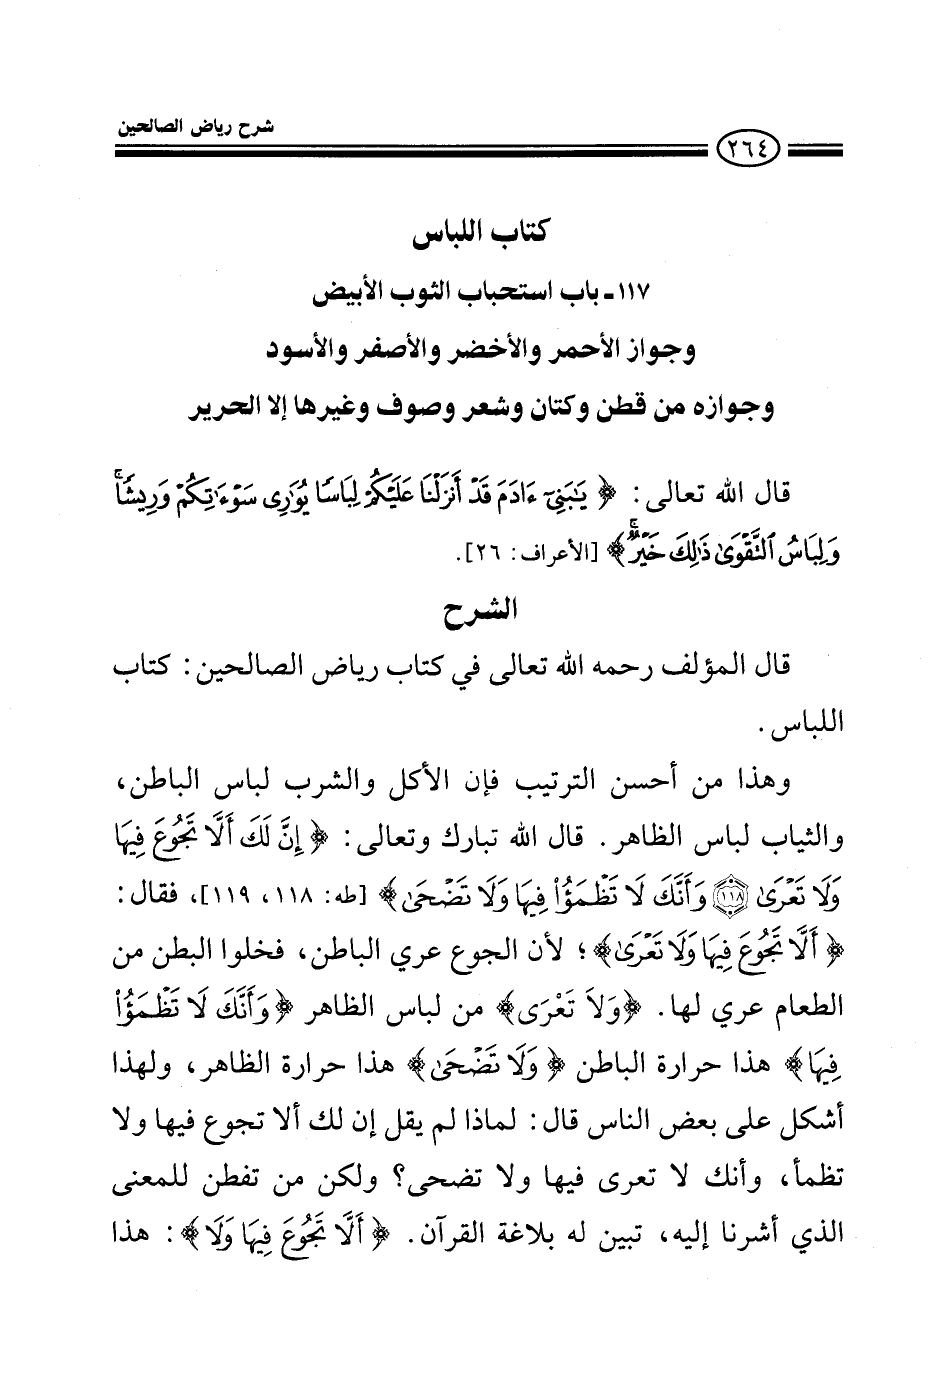 شرح رياض الصالحين
٢٦٤
كتاب اللباس
١١٧ـ باب استحباب الثوب الأبيض
وجواز الأحمر والأخضر والأصفر والأسود
وجوازه من قطن وكتان وشعر وصوف وغيرها إلا الحرير
قال الله تعالى: ﴿ يَٰبَنِيٓ ءَادَمَ قَدۡ أَنزَلۡنَا عَلَيۡكُمۡ لِبَاسٗا يُوَٰرِي سَوۡءَٰتِكُمۡ وَرِيشٗاۖ
وَلِبَاسُ ٱلتَّقۡوَىٰ ذَٰلِكَ خَيۡرٞۚ﴾ [الأعراف: ٢٦].
الشرح
قال المؤلف رحمه الله تعالى في كتاب رياض الصالحين: كتاب
اللباس.
وهذا من أحسن الترتيب فإن الأكل والشرب لباس الباطن،
والثياب لباس الظاهر. قال الله تبارك وتعالى: ﴿ إِنَّ لَكَ أَلَّا تَجُوعَ فِيهَا
وَلَا تَعۡرَىٰ ١١٨ وَأَنَّكَ لَا تَظۡمَؤُاْ فِيهَا وَلَا تَضۡحَىٰ﴾ [طه: ١١٨، ١١٩]، فقال:
﴿ أَلَّا تَجُوعَ فِيهَا وَلَا تَعۡرَىٰ﴾؛ لأن الجوع عري الباطن، فخلوا البطن من
الطعام عري لها. ﴿وَلاَ تَعْرَى﴾ من لباس الظاهر ﴿وَأَنَّكَ لَا تَظۡمَؤُاْ
فِيهَا﴾ هذا حرارة الباطن ﴿ وَلَا تَضۡحَىٰ﴾ هذا حرارة الظاهر، ولهذا
أشكل على بعض الناس قال: لماذا لم يقل إن لك ألا تجوع فيها ولا
تظمأ، وأنك لا تعرى فيها ولا تضحى؟ ولكن من تفطن للمعنى
الذي أشرنا إليه، تبين له بلاغة القرآن. ﴿ أَلَّا تَجُوعَ فِيهَا وَلَا﴾: هذا